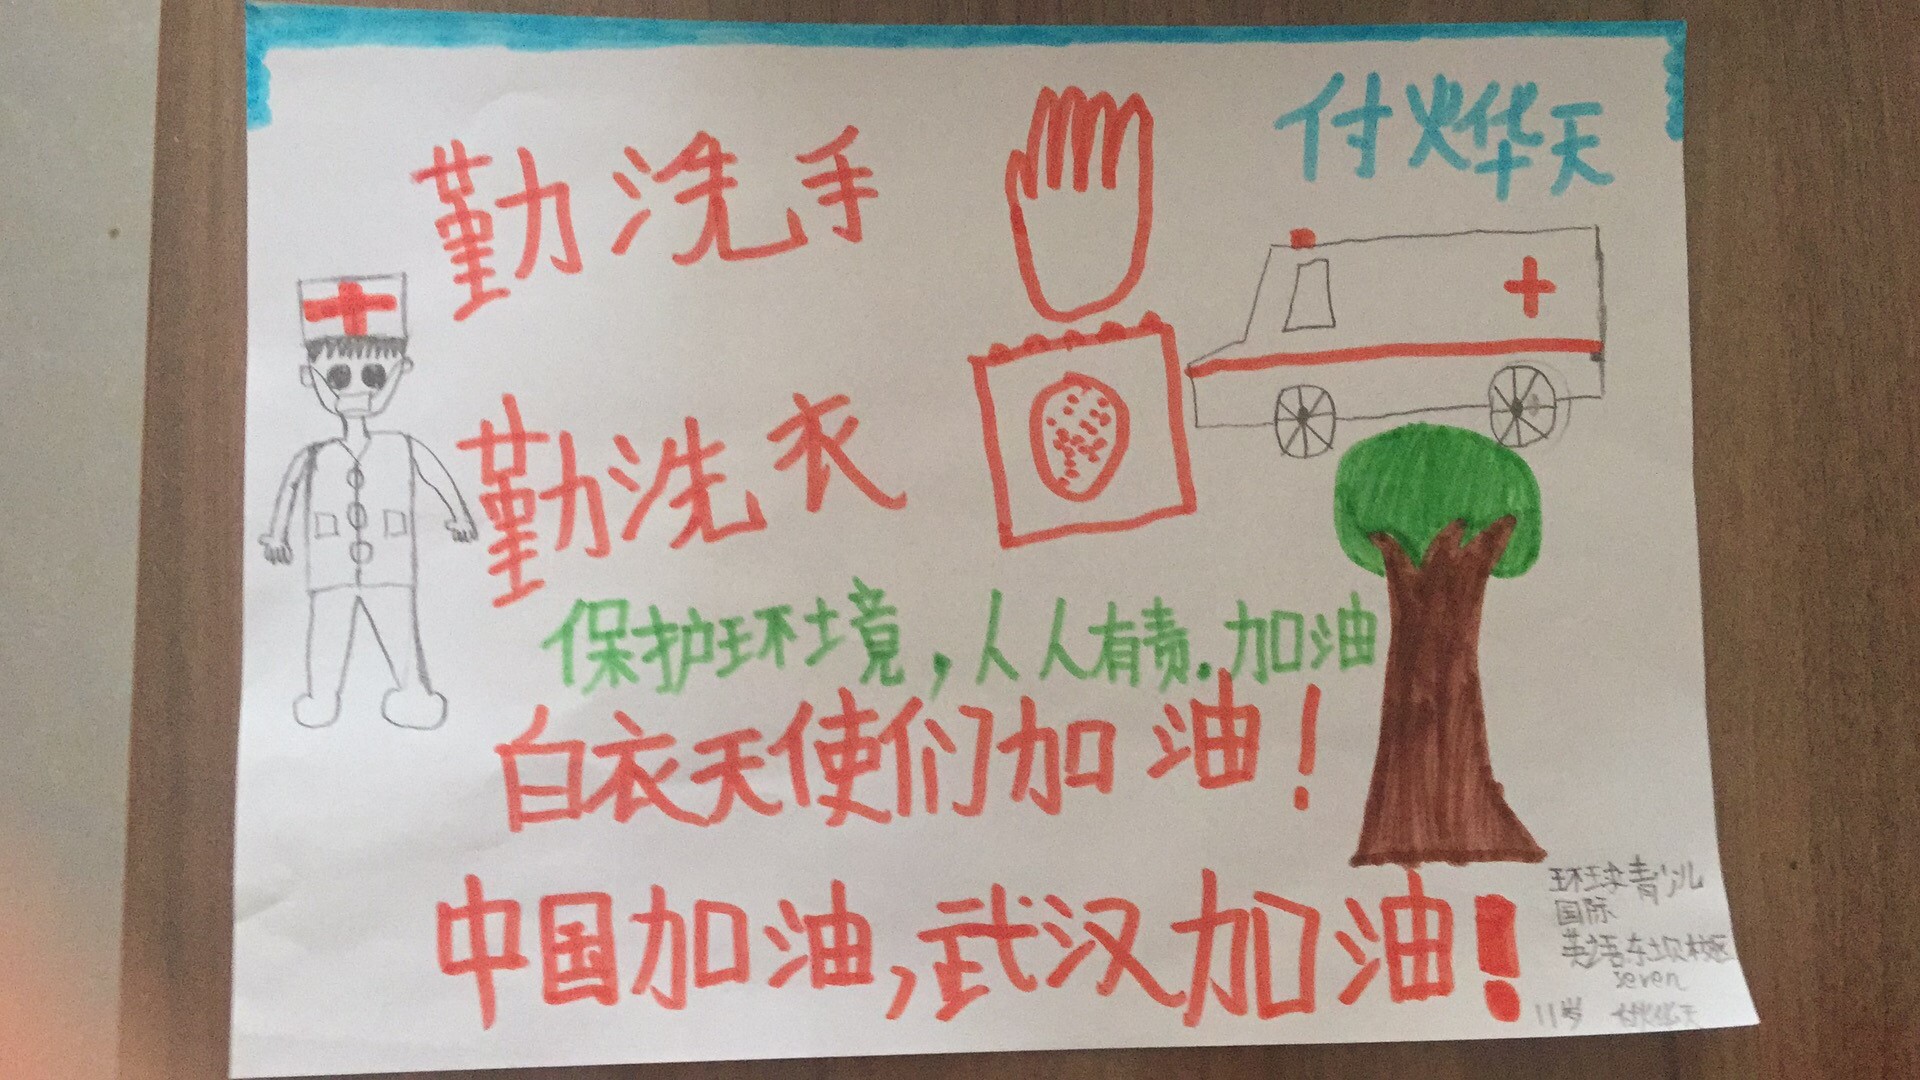 付烨天
勤洗手
勤洗衣
保护环境,人人有责.加油
白衣天使们加油!
中国加油,武汉加油!
环球青少儿
国际
英语东坝校区
seven
11岁 付烨天